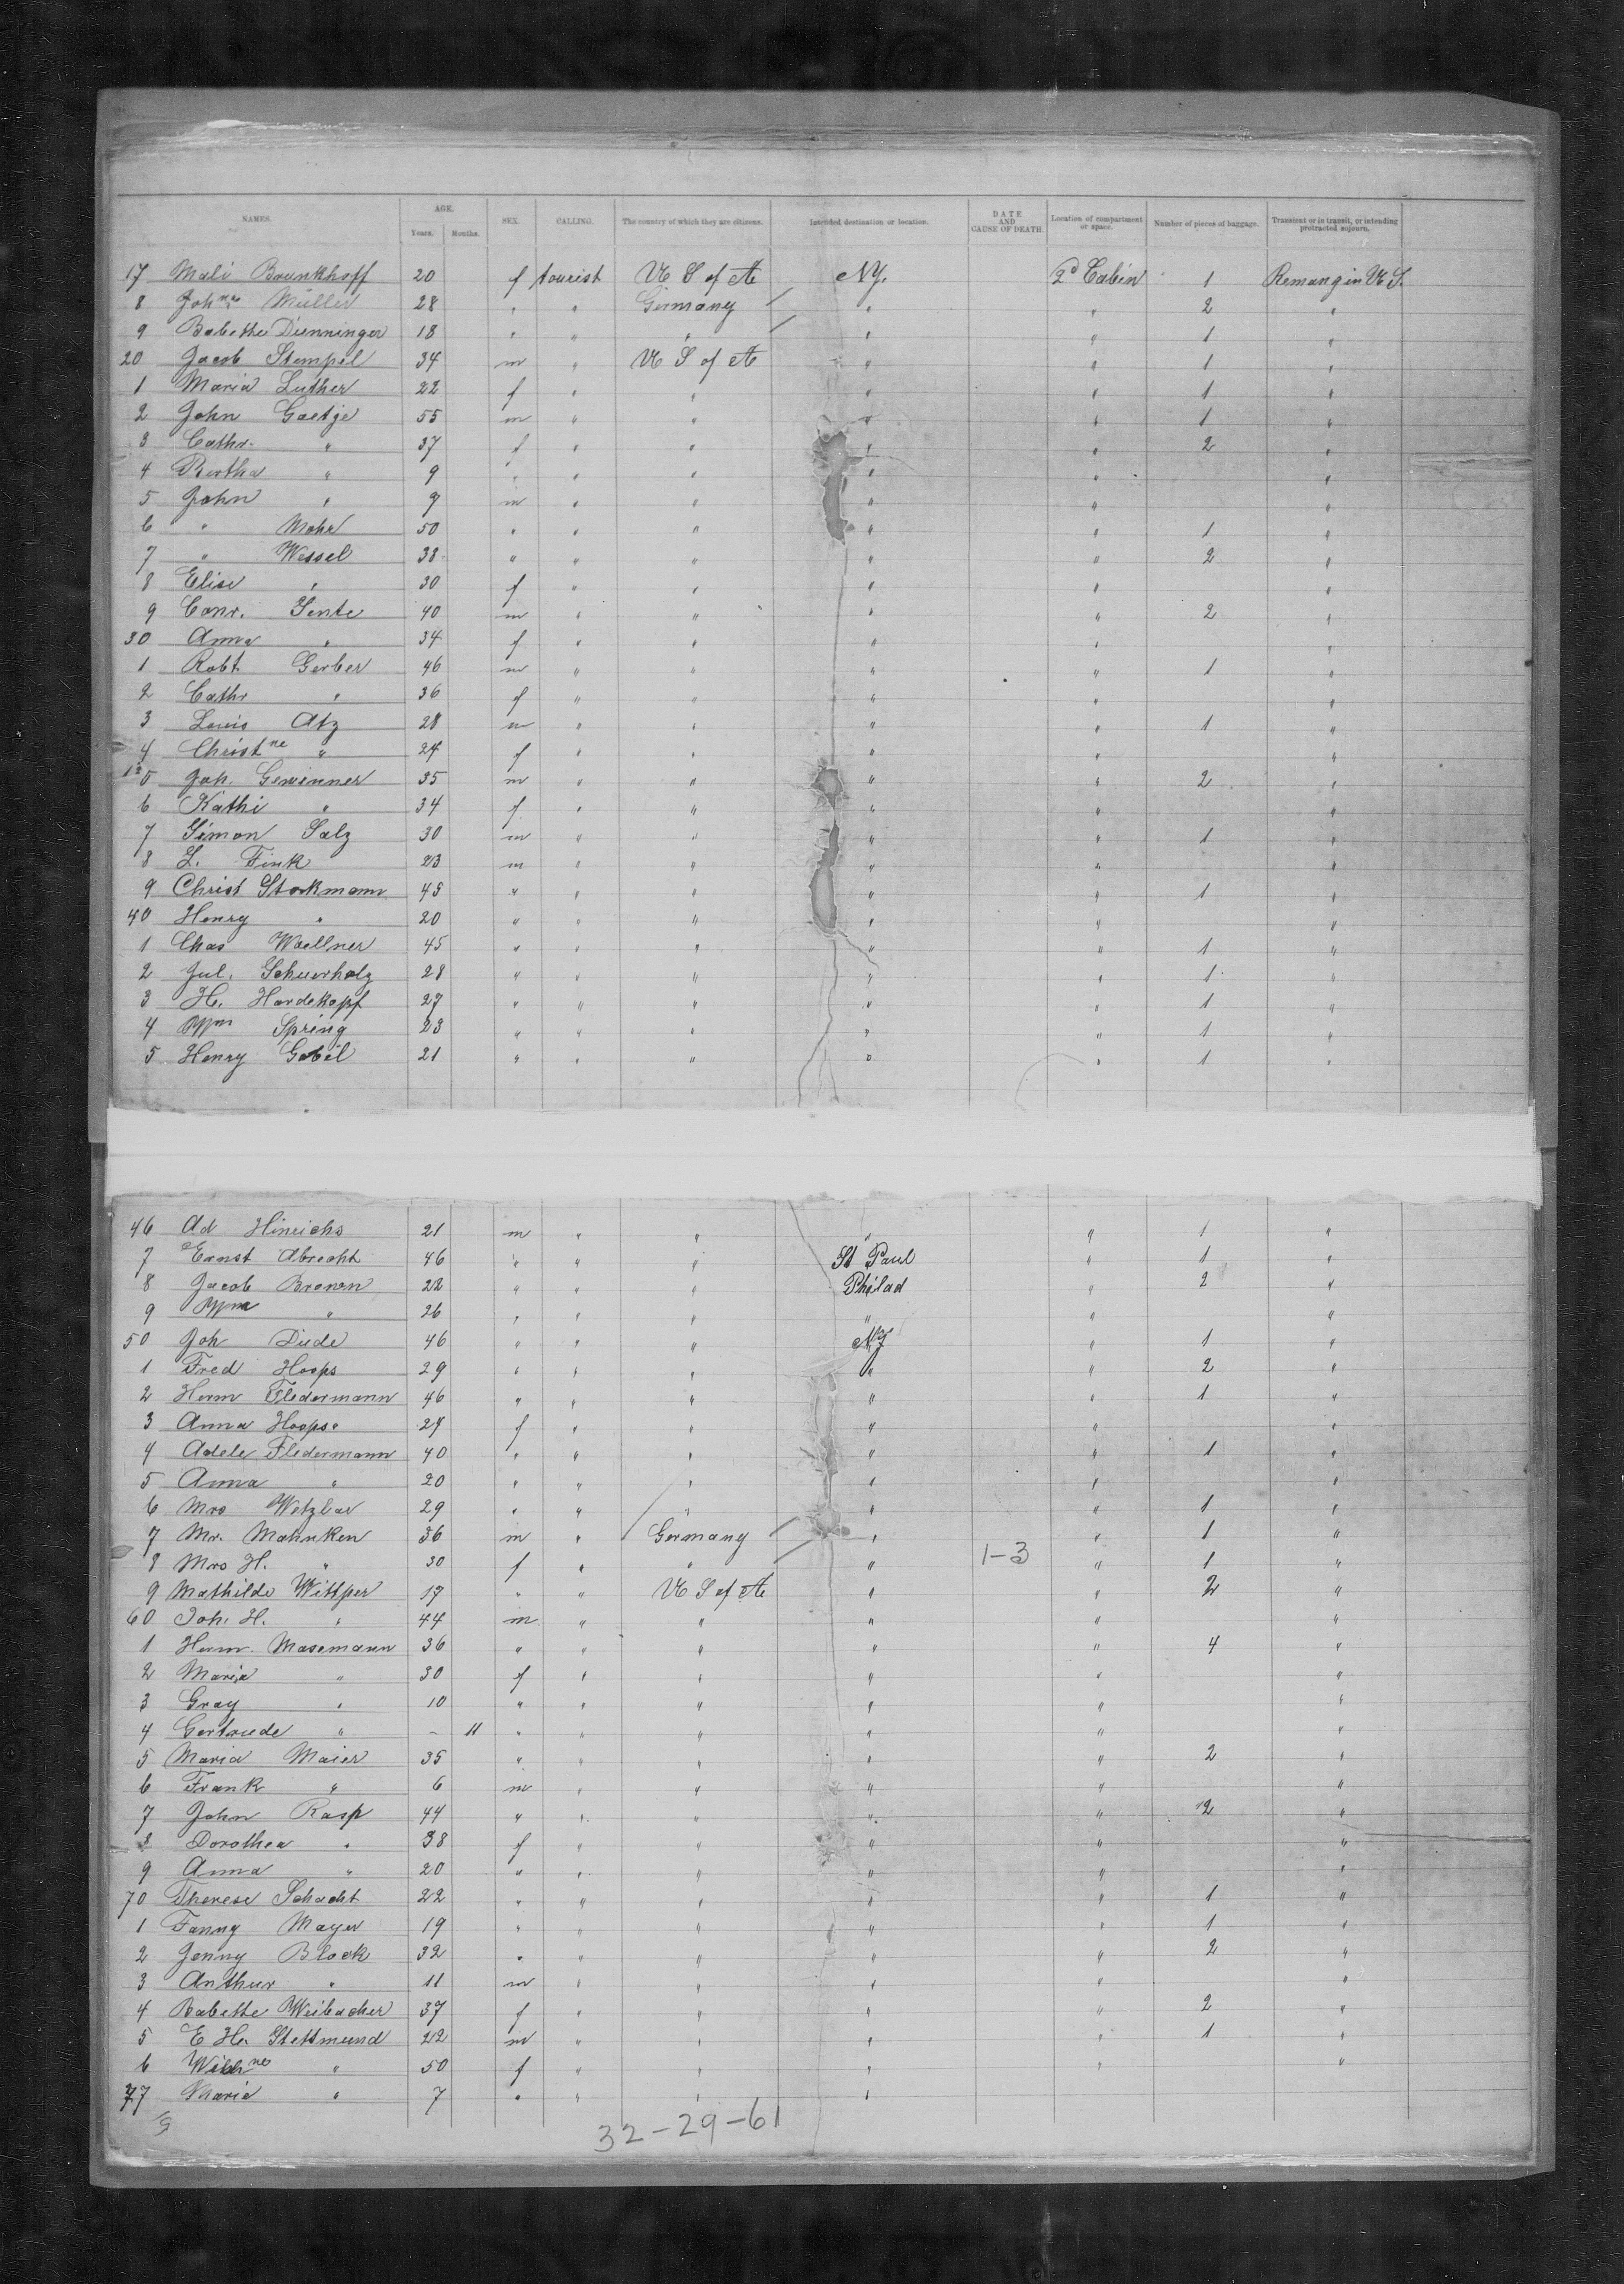 NAMES. AGE. Years. Months. SEX. CALLING. The country of which they are citizens. Intended destination or location. DATE AND CAUSE OF DEATH. Location of compartment or space. Number of pieces of baggage. Transient or in transit, or intending protracted sojourn.
17 Mali Brunkhoff 20 f tourist U S of A N.Y. 2d Cabin 1 Remang in U.S.
8 Johnne Müller 28 " " Germany " " 2 "
9 Babette Dünninger 18 " " " " " 1 "
20 Jacob Stempel 34 m " U S of A " " 1 "
1 Maria Luther 22 f " " " " 1 "
2 John Gaetje 55 m " " " " 1 "
3 Cathr. " 37 f " " " " 2 "
4 Bertha " 9 " " " " " "
5 John " 9 m " " " " "
6 " Mohr 50 " " " " " 1 "
7 " Wessel 38 " " " " " 2 "
8 Elise " 30 f " " " " "
9 Conr. Gente 40 m " " " " 2 "
30 Anna " 34 f " " " " "
1 Robt. Gerber 46 m " " " " 1 "
2 Cathr " 36 f " " " " "
3 Louis Atz 28 m " " " " 1 "
4 Christne " 24 f " " " " "
5 Joh. Gewinner 35 m " " " " 2 "
6 Kathi " 34 f " " " " "
7 Simon Salz 30 m " " " " 1 "
8 L. Fink 23 m " " " " "
9 Christ Stockmann 45 " " " " " 1 "
40 Henry " 20 " " " " " "
1 Chas Woellner 45 " " " " " 1 "
2 Jul. Schuerholz 28 " " " " " 1 "
3 H. Hardekopf 27 " " " " " 1 "
4 Wm Spring 23 " " " " " 1 "
5 Henry Gobel 21 " " " " " 1 "
46 Ad Hinrichs 21 m " " " " 1 "
7 Ernst Abrecht 46 " " " St Paul " 1 "
8 Jacob Brown 22 " " " Philad " 2 "
9 Wm " 26 " " " " " "
50 Joh Dude 46 " " " NY " 1 "
1 Fred Hoops 29 " " " " " 2 "
2 Herm Fledermann 46 " " " " " 1 "
3 Anna Hoops 27 f " " " " "
4 Adele Fledermann 40 " " " " " 1 "
5 Anna " 20 " " " " " "
6 Mrs Wetzlar 29 " " " " " 1 "
7 Mr. Mahnken 36 m " Germany " " 1 "
8 Mrs H. " 30 f " " " 1-3 " 1 "
9 Mathilde Witthper 17 " " U S of A " " 2 "
60 Joh. H. " 44 m " " " " "
1 Herm. Masemann 36 " " " " " 4 "
2 Maria " 30 f " " " " "
3 Gray " 10 " " " " " "
4 Gertrude " - 11 " " " " " "
5 Maria Maier 35 " " " " " 2 "
6 Frank " 6 m " " " " "
7 John Rasp 44 " " " " " 2 "
8 Dorothea " 38 f " " " " "
9 Anna " 20 " " " " " "
70 Therese Schacht 22 " " " " " 1 "
1 Fanny Mayer 19 " " " " " 1 "
2 Jenny Block 32 " " " " " 2 "
3 Arthur " 11 m " " " " "
4 Babette Weibacher 37 f " " " " 2 "
5 E. H. Stettmund 22 m " " " " 1 "
6 Wilhne " 50 f " " " " "
77 Marie " 7 " " " "
32-29-61